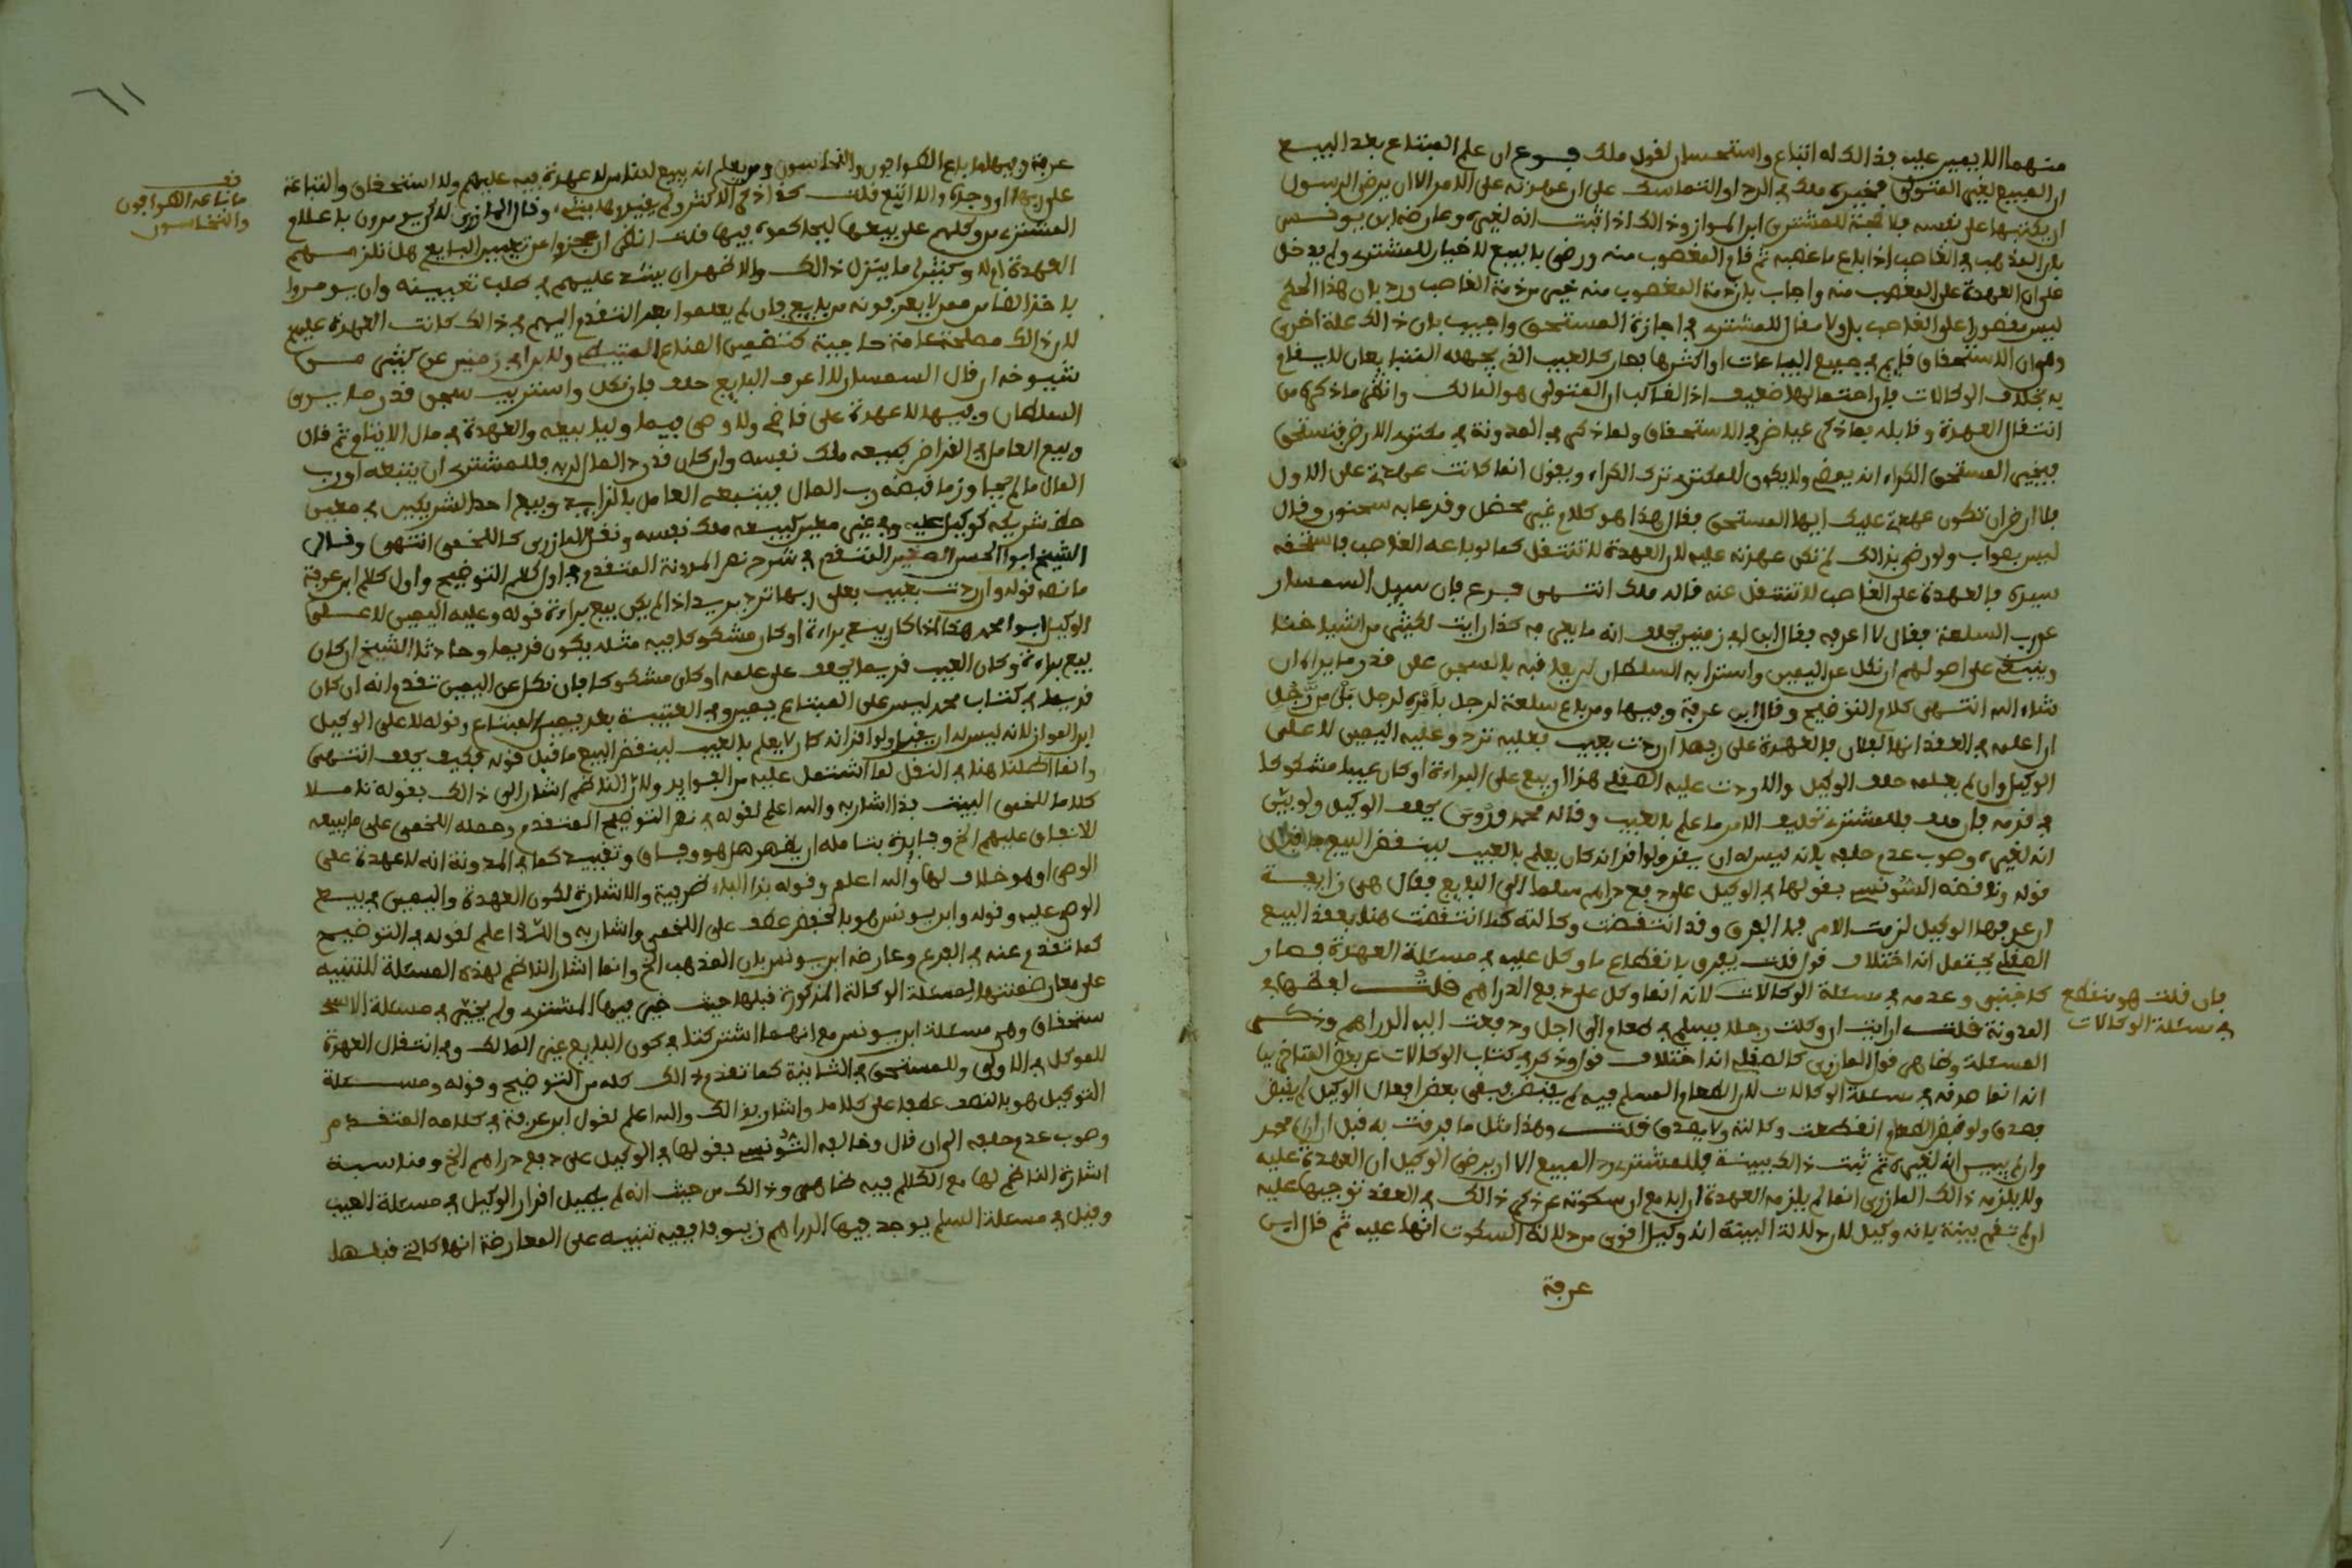 منهما الا يمين عليه بذالك له اتباع واستحسان لقول ملك فرع ان علم المبتاع بعد البيع
ان المبيع لغير المتولى فخيره ملك في الرد او التماسك على ان عهدته على الامر الا ان يرضى الرسول
ان يكتبها على نفسه فلا حجة للمشترى ابن المواز وذالك اذا ثبت انه لغيره وعارضه ابن يونس
بان المذهب في الغاصب اذا باع ما غصبه ثم قام المغصوب منه ورضى بالبيع لا خيار للمشترى ولم يدخل
على ان العهدة على المغصوب منه واجاب بان ذمة المغصوب منه خير من ذمة الغاصب ورد بان هذا الحكم
ليس مقصورا على الغاصب بل ولا مقال للمشترى في اجازة المستحق واجيب بان ذالك علة اخرى
وهي ان الاستحقاق قايم في جميع البياعات او اكثرها فصار كالعيب الذي يجهله المتبايعان لا يسلم
به بخلاف الوكالات فان احتمالها ضعيف اذ الغالب ان المتولى هو المالك وانظر ما ذكره من
انتقال العهدة وقابله بما ذكر عياض في الاستحقاق ولما ذكر في المدونة في مكترى الارض فتستحق
فيجيز المستحق الكراء انه يمضى ولا يكون للمكترى ترك الكراء ويقول انما كانت عهدتى على الاول
فلا ارضى ان تكون عهدتى عليك ايها المستحق فقال هذا هو كلام غير محصل وقد عابه سحنون وقال
ليس بصواب ولو رضى بذالك لم تكن عهدته عليه لان العهدة لا تنتقل كما لو باعه الغاصب فاستحقه
سيده فالعهدة على الغاصب لا تنتقل عنه قاله ملك انتهى فرع فان سيل السمسار
عن رب السلعة فقال لا اعرفه فقال ابن ابي زمنين يحلف انه ما يعرفه كذا رايت لكثير من اشياخنا
وينبغى على اصولهم ان نكل عن اليمين واسترابه السلطان ان يعاقبه بالسجن على قدر ما يراه ان
شاء الله انتهى كلام التوضيح وقال ابن عرفة وفيها ومن باع سلعة لرجل بامره لرجل من رجل
ان اعلمه في العقد انها لفلان فالعهدة على ربها ان ردت بعيب فعليه ترد وعليه اليمين لا على
الوكيل وان لم يعلمه حلف الوكيل والا ردت عليه الصقلى هذا ان بيع على البراءة او كان عيبا مشكوكا
في قدمه فان حلف فللمشترى تحليف الامر ما علم بالعيب وقاله محمد وروى يحلف الوكيل ولو بين
انه لغيره وصوب عدم حلفه بانه ليس له ان يقر ولو اقر انه كان يعلم بالعيب لينقض البيع ما قبل
قوله وناقضه التونسى بقولها في الوكيل على دفع دراهم سلما الى البايع فقال هي زايفة
ان عرفها الوكيل لزمت الامر فما الفرق وقد انتقضت وكالته كما انتقضت هنا بعقد البيع
الصقلى يحتمل انه اختلاف قول قلت يفرق بانقطاع ما وكل عليه في مسئلة العهدة فصار
كاجنبى وعدمه في مسئلة الوكالات لانه انما وكل على دفع الدراهم قلت لفظها في
المدونة قلت ارايت ان وكلت رجلا يسلم في طعام الى اجل ودفعت اليه الدراهم وذكر
المسئلة وظاهر قول المازرى كالصقلى انه اختلاف قول وذكر في كتاب الوكالات عن بعض المتاخرين
انه انما صدقه في مسئلة الوكالات لان الطعام المسلم فيه لم يقبض فبقى بعض افعال الوكيل لم ينقض
فصدق ولو قبض الطعام انقطعت وكالته ولا يصدق قلت وهذا مثل ما فرقت به قبل ان اراه محمد
وان لم يبين انه لغيره ثم ثبت ذالك ببينة فللمشترى رد المبيع الا ان يرضى الوكيل ان العهدة عليه
ولا يلزمه ذالك المازرى انما لم يلزمه العهدة ابدا مع ان سكوته عن ذكر ذالك في العقد توجبها عليه
ان لم تقم بينة بانه وكيل لان دلالة البينة انه وكيل اقوى من دلالة السكوت انها عليه ثم قال ابن
عرفة
فان قلت هو منقطع
في مسئلة الوكالات
٦١
قف
ما باعه الطوافون
والنخاسون
عرفة وفيها ما باع الطوافون والنخاسون ومن يعلم انه يبيع للناس لا عهدة فيه عليهم ولا استحقاق والتباعة
على ربها ان وجد والا اتبع قلت كذا ذكر الاكثر ولم يقيدوها بشيء وقال المازرى
المشترى من وكلهم على بيعها ليحاكموه فيها قلت انظر ان عجزوا عن تعيين البايع هل تلزمهم
العهدة ام لا وكثيرا ما ينزل ذالك والاظهر ان يشد عليهم في طلب تعيينه وان يومروا
بالا ياخذوا الا ممن يعرفونه من بايع فان لم يعلموا بعد التقدم اليهم في ذالك كانت العهدة عليهم
لان ذالك مصلحة عامة حاجية كتضمين الصناع المتيطى ولابن ابي زمنين عن كثير من
شيوخه ان قال السمسار لا اعرف البايع حلف فان نكل واستريب سجن قدر ما يرى
السلطان وفيها لا عهدة على قاض ولا وصى فيما وليا بيعه والعهدة في مال الايتام ثم قال
وبيع العامل في القراض كبيعه ملك نفسه وان كان قدر د المال لربه فللمشترى ان يتبعه او رب
المال ما لم يجاوز ما قبضه رب المال فيتبعه العامل بالزايد وبيع احد الشريكين في معين
حظ شريكه كوكيل عليه وفي غير معين كبيعه ملك نفسه ونقل المازرى كاللخمى انتهى وقال
الشيخ ابو الحسن الصغير المتقدم في شرح نص المدونة المتقدم في اول كلام التوضيح واول كلام ابن عرفة
ما نصه قوله وان ردت بعيب فعلى ربها ترد يريد اذا لم يكن بيع براءة قوله وعليه اليمين لا على
الوكيل ابو محمد هذا اذا كان بيع براءة او كان مشكوكا فيه مثله يكون قديما وحادثا الشيخ ان كان
بيع براءة وكان العيب قديما يحلف على علمه او كان مشكوكا فان نكل عن اليمين تقدم انه ان كان
قديما في كتاب محمد ليس على المبتاع يمين وفي العتبية بعد يمين المبتاع وقوله لا على الوكيل
ابن المواز لانه ليس له ان يقر ولو اقر انه كان لا يعلم بالعيب لينقض البيع ما قبل قوله فكيف يحلف انتهى
وانما اطلنا هنا في النقل لما اشتمل عليه من الفوايد ولان الناظم اشار الى ذالك بقوله تاملا
كلاما للخمى البيت بذا اشار به والله اعلم لقوله في نص التوضيح المتقدم وحمله اللخمى على ما بيعه
للانفاق عليهم الخ وفايدة تامله ان يظهر هل هو وفاق وتقييد كما في المدونة انه لا عهدة على
الوصى او هو خلاف لها والله اعلم وقوله بذا الباء ظرفية والاشارة لكون العهدة واليمين في بيع
الوصى عليه وقوله وابن يونس هو بالخفض عطف على اللخمى واشار به والله اعلم لقوله في التوضيح
كما تقدم عنه في الفرع وعارضه ابن يونس بان المذهب الخ وانما اشار الناظم لهذه المسئلة للتنبيه
على معارضتها لمسئلة الوكالة المذكورة قبلها حيث خير فيها المشترى ولم يخير في مسئلة الاستـ
ستحقاق وهي مسئلة ابن يونس مع انهما اشتركتا في كون البايع غير المالك وفي انتقال العهدة
للموكل في الاولى وللمستحق في الثانية كما تقدم ذالك كله من التوضيح وقوله ومسئلة
التوكيل هو بالنصب عطفا على كلاما واشار بذالك والله اعلم لقول ابن عرفة في كلامه المتقدم
وصوب عدم حلفه الى ان قال وخالفه التونسى بقولها في الوكيل على دفع دراهم الخ ومناسبة
اشارة الناظم لها مع الكلام فيه ظاهر وذالك من حيث انه لم يقبل اقرار الوكيل في مسئلة العيب
وقبل في مسئلة السلم يوجد فيها الدراهم زيوفا ففيه تنبيه على المعارضة انها كالتى قبلها